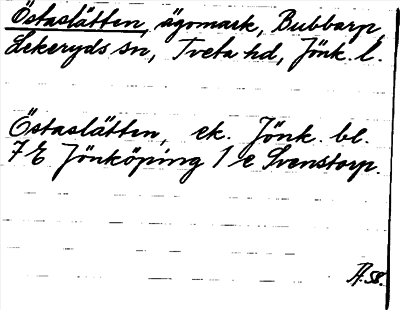 Östaslätten, ägomark, Bubbarp,
Lekeryds sn, Tveta hd, Jönk. l.
Östaslätten, ek. Jönk. bl.
7 E Jönköping 1 e Svenstorp.
A. 58.